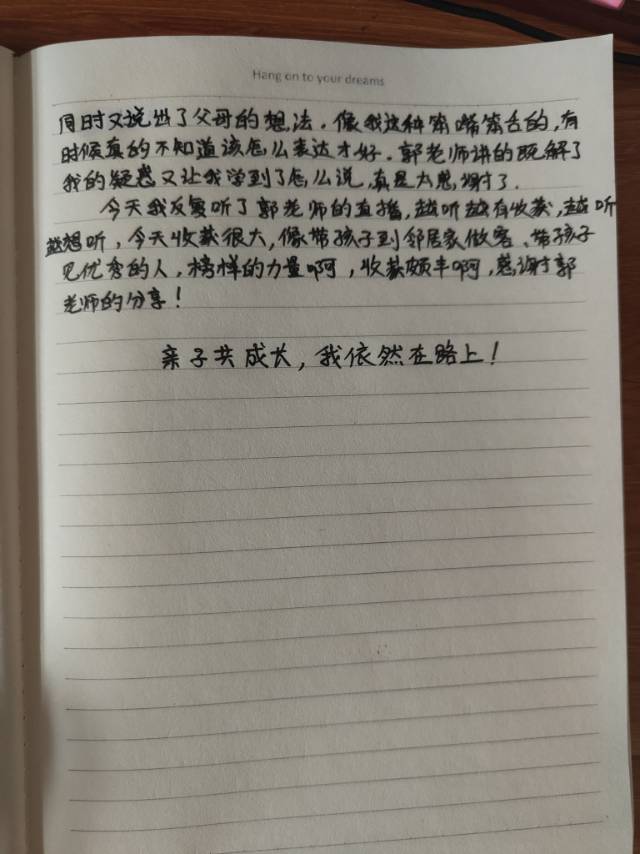 Hang on to your dreams
同时又说出了父母的想法。像我这种笨嘴笨舌的,有
时候真的不知道该怎么表达才好。郭老师讲的既解了
我的疑惑又让我学到了怎么说,真是太感谢了。
今天我反复听了郭老师的直播,越听越有收获,越听
越想听,今天收获很大,像带孩子到邻居家做客、带孩子
见优秀的人,榜样的力量啊,收获颇丰啊,感谢郭
老师的分享!
亲子共成长,我依然在路上!